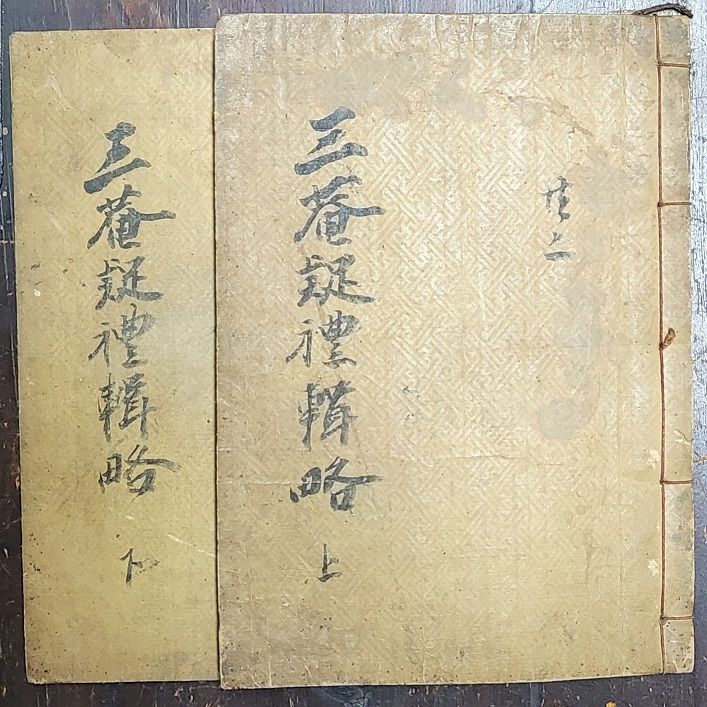 共二
三菴疑禮輯略 上
三菴疑禮輯略 下